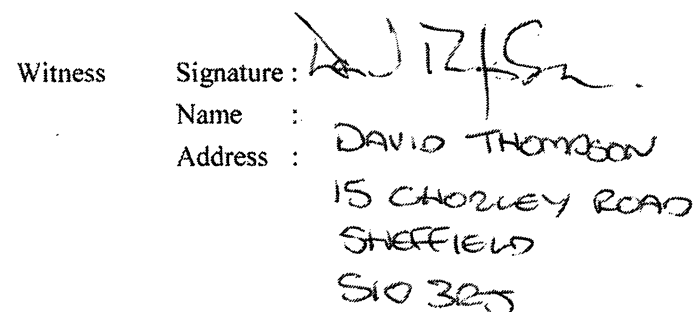 Witness Signature :
Name : DAVID THOMPSON
Address :
15 CHORLEY ROAD
SHEFFIELD
S10 3RJ